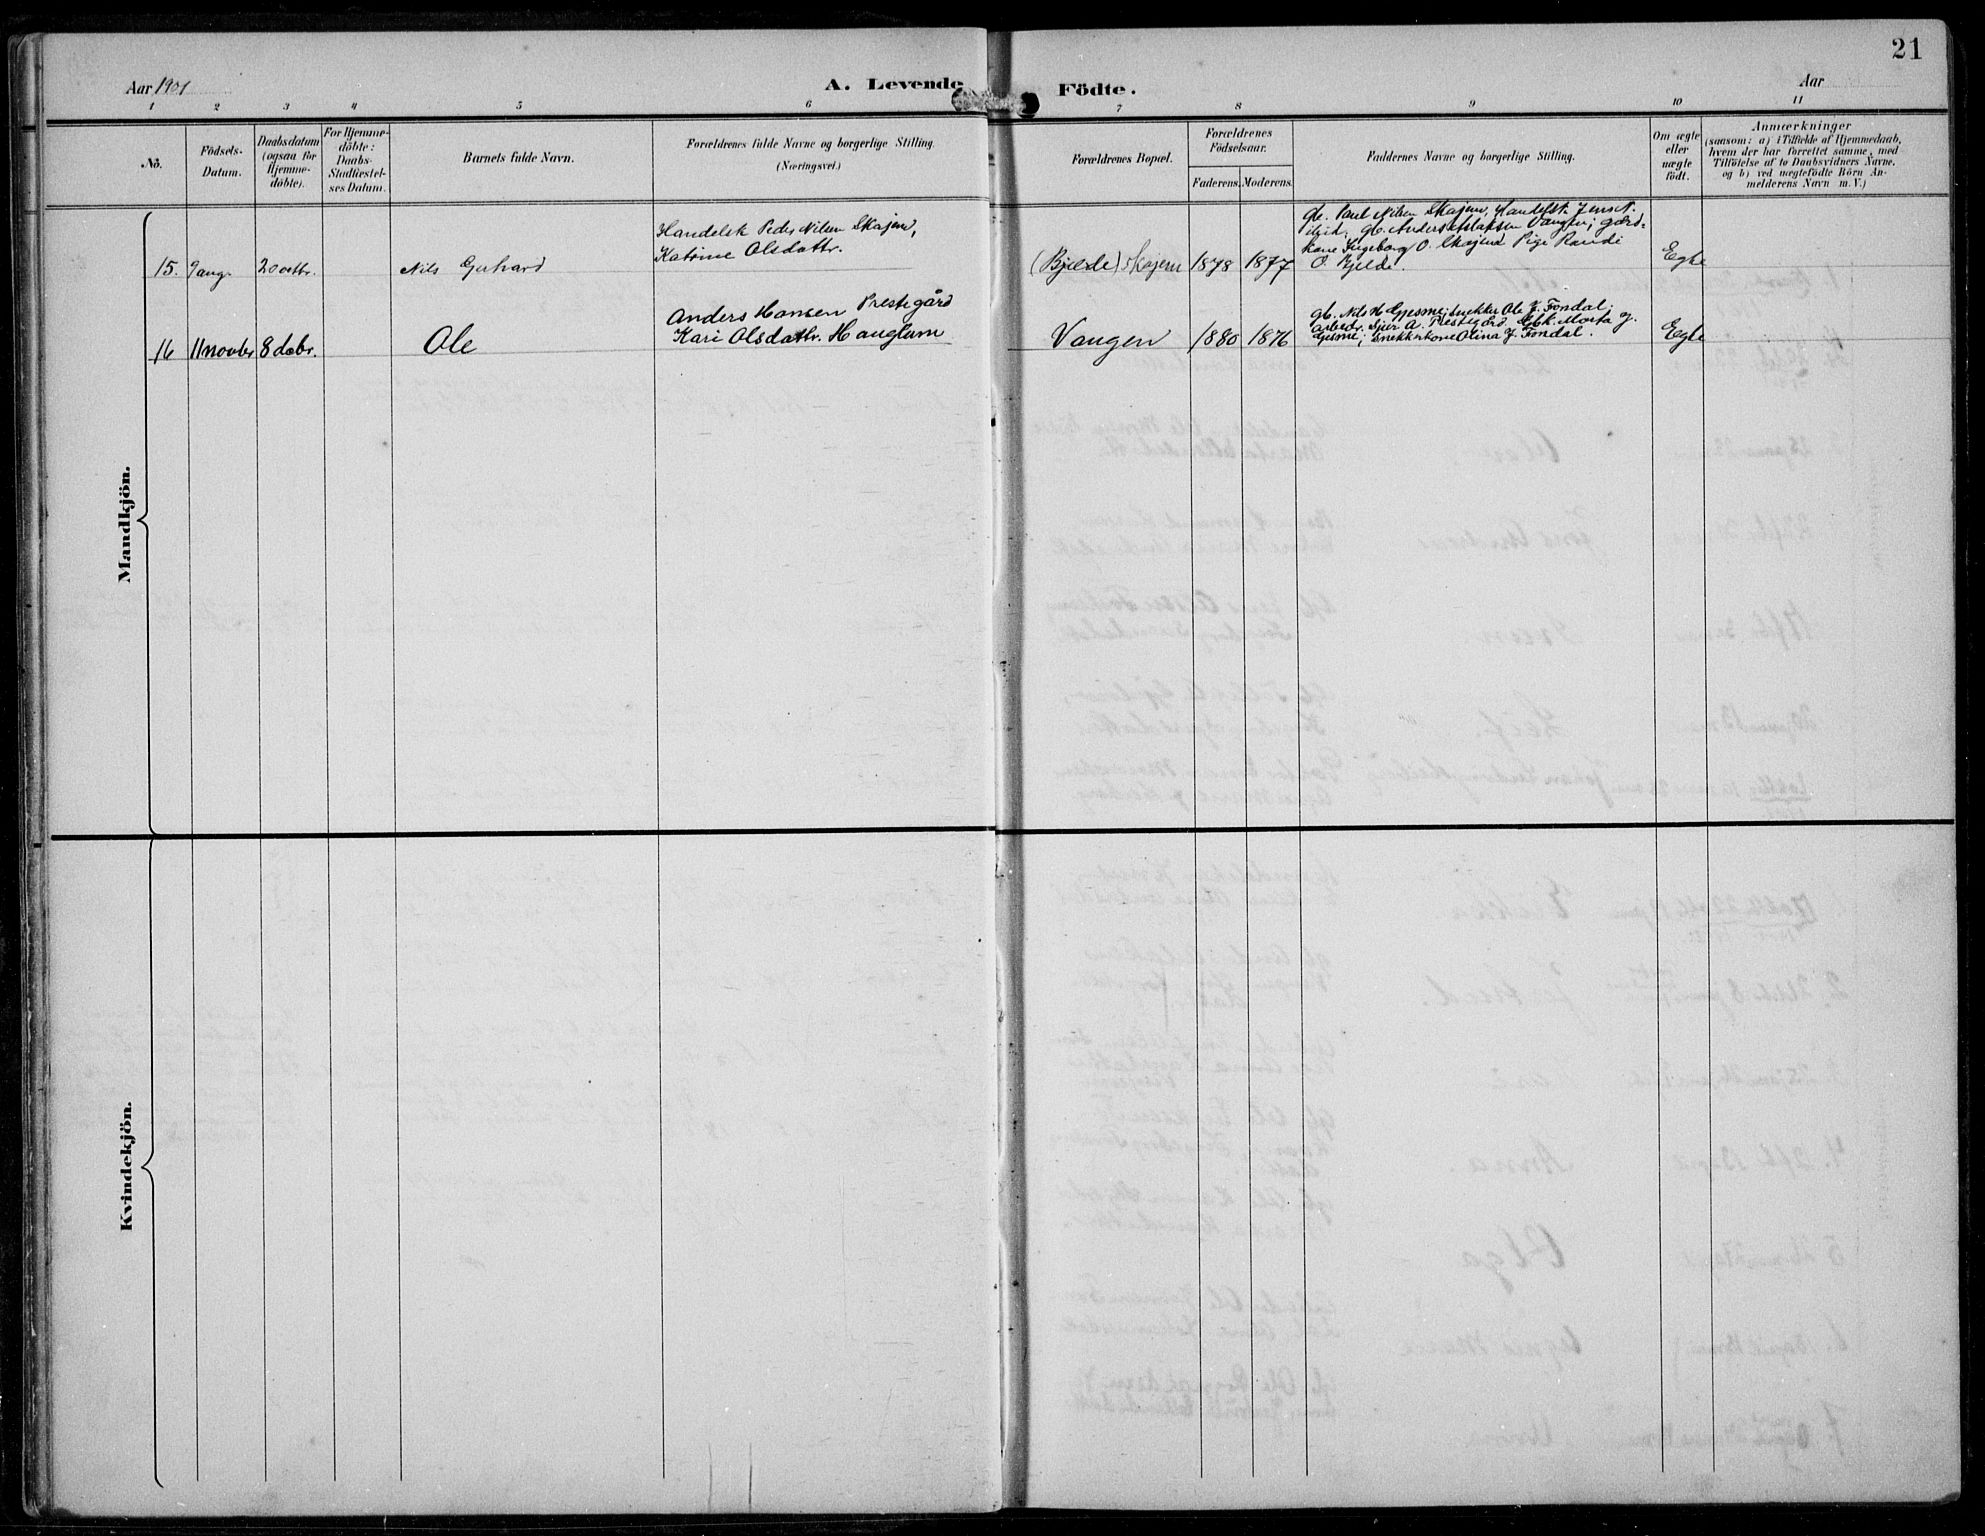 21
Aar 1901
A. Levende
Födte.
Aar
1 2 3 4 5 6 7 8 9 10 11
No.
Födsels-
Datum.
Daabsdatum
(ogsaa for
Hjemme-
döbte).
For Hjemme-
döbte:
Daabs-
Stadfæstel-
ses Datum.
Barnets fulde Navn.
Forældrenes fulde Navne og borgerlige Stilling.
(Næringsvei.)
Forældrenes Bopæl.
Forældrenes
Födselsaar.
Faderens. Moderens.
Faddernes Navne og borgerlige Stilling.
Om ægte
eller
uægte
födt.
Anmærkninger
(saasom: a) i Tilfælde af Hjemmedaab,
hvem der har forrettet samme, med
Tilföielse af to Daabsvidners Navne,
og b) ved uægtefödte Börn An-
melderens Navn m. V.)
Mandkjön.
15. 9 aug. 20 octbr. Nils Gerhard
Handelsk Peder Nilsen Skajem,
Katrine Olsdattr.
(Bjelde) Skajem 1878 1877
gb. Paul Nilsen Skajem, Handelsk Jens N.
ibid, gb. Anders Aslaksen Vangen; gard-
kone Ingeborg O. Skajem Pige Randi
O. Bjelde.
Egte
16 11 novbr 8 debr. Ole
Anders Hansen Prestegård
Kari Olsdattr. Hauglum
Vangen 1880 1876
gb. Nils H Gjesme; snekker Ole J. Fondal;
arbeidr. Sjur A. Prestegård, gbk. Marta
Gjesme; Snekkerkone Olina J. Fondal.
Egte
Kvindekjön.